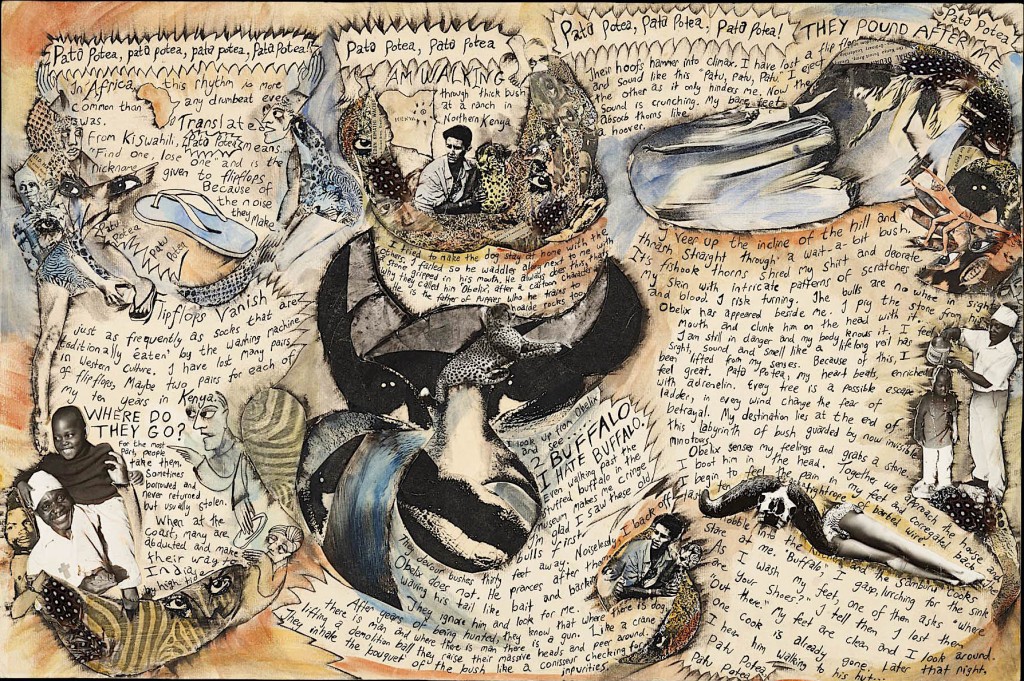 Pata Potea, pata potea, pata potea, Pata Potea!
In Africa, this rhythm is more
common than any drumbeat ever
was. Translate
From Kiswahili, "Pata Potea" means.
"Find one, lose one" and is the
Nickname given to flipflops
Because of
the noise
they make
Patu
Potea
Patu
Potea
Flipflops vanish are
just as frequently as socks that are
traditionally 'eaten' by the washing machine
in Western Culture. I have lost many pairs
of flipflops, Maybe two pairs for each of
my ten years in Kenya.
WHERE DO
THEY GO?
For the most
part, people
take them.
Sometimes
borrowed and
never returned
but usually stolen.
When at the
Coast, many are
abducted and make
their way to
India
by high tide
Pata Potea, Pata Potea
I AM WALKING
through thick bush
at a ranch in
Northern Kenya
KENYA
I tried to make the dog stay at home with the
others. I failed so he waddles along next to me with
a stone gripped in his mouth. He always does this, that's
why they called him Obelix after a cartoon character.
He is the father of puppies who he trains to
hoarde rocks too.
I look up from Obelix
and see....
2 BUFFALO
I HATE BUFFALO.
Even walking past the
stuffed buffalo in the
museum makes me cringe.
I'm glad I saw these old
bulls first.
They devour bushes thirty feet away. Noiselessly, I back off
Obelix does not. He prances after them
waving his tail like bait and barking
They ignore him and look for me.
After years of being hunted, they know that where
there is man and where there is man there is a gun. Like a crane
There is dog
lifting a demolition ball they raise their massive heads and peer around.
They inhale the bouquet of the bush like a conisseur checking for
inpurities.
Pata Potea, Pata Potea, Pata Potea!
THEY POUND AFTER ME
Pata Potea,
Pata Potea,
Their hoofs hammer into climax. I have lost a flip flop
and sound like this "Patu, Patu, Patu." I eject
the other as it only hinders me. Now the
Sound is crunching. My bare feet
Absorb thorns like
a hoover.
I veer up the incline of the hill and
thrash straight through a wait-a-bit bush.
It's fishook thorns shred my shirt and decorate
my skin with intricate patterns of scratches
and blood. I risk turning. The bulls are no where in sight
Obelix has appeared beside me. I pry the stone from his
mouth and clunk him on the head with it.
I am still in danger and my body knows it. I feel
Sight, sound, and smell like a lifelong veil has
been lifted from my senses. Because of this, I
feel great. Pata Potea, my heart beats, enriched
with adrenelin. Every tree is a possible escape
ladder, in every wind change the fear of
betrayal. My destination lies at the end of
this labyrinth of bush guarded by now invisible
minotours.
Obelix senses my feelings and grabs a stone.
I boot him in the head. Together we approach the house and
I begin to feel the pain in my feet and corrigated back
last tightrope of barbed wire
I hobble into the and the Samburu Cooks
stare at me. "Buffalo," I gasp, lurching for the sink
As I wash my feet, one of them asks "where
are Your Shoes?" I tell them I lost them
"Out there." My feet are clean and I look around.
One Cook is already gone. Later that night,
I hear him walking to his hut...
Patu Potea
Patu Potea